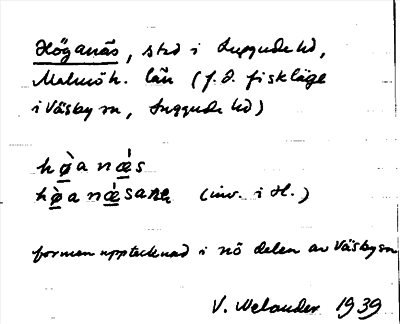 Höganäs, stad i Luggude hd,
Malmöh. län (f.d. fiskläge
i Väsby sn, Luggude hd)
hø̀anæ´s
hø̀anæ´sarna (inv. i H.)
formen upptecknad i nö delen av Väsby sn
V. Welander 1939